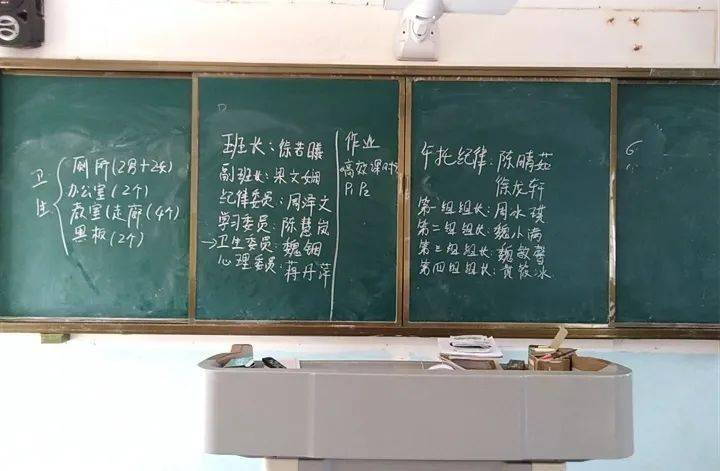 卫生
厕所(2男+2女)
办公室(2个)
教室(走廊(4个)
黑板(2个)
班长:徐若曦
副班长:梁文娴
纪律委员:周泽文
学习委员:陈慧岚
→卫生委员:魏钿
心理委员:蒋丹萍
作业
高效课时
P1 P2
午托纪律:陈晴茹
徐友轩
第一组组长:周冰琪
第二组组长:魏小满
第三组组长:魏敏馨
第四组组长:黄筱冰
6